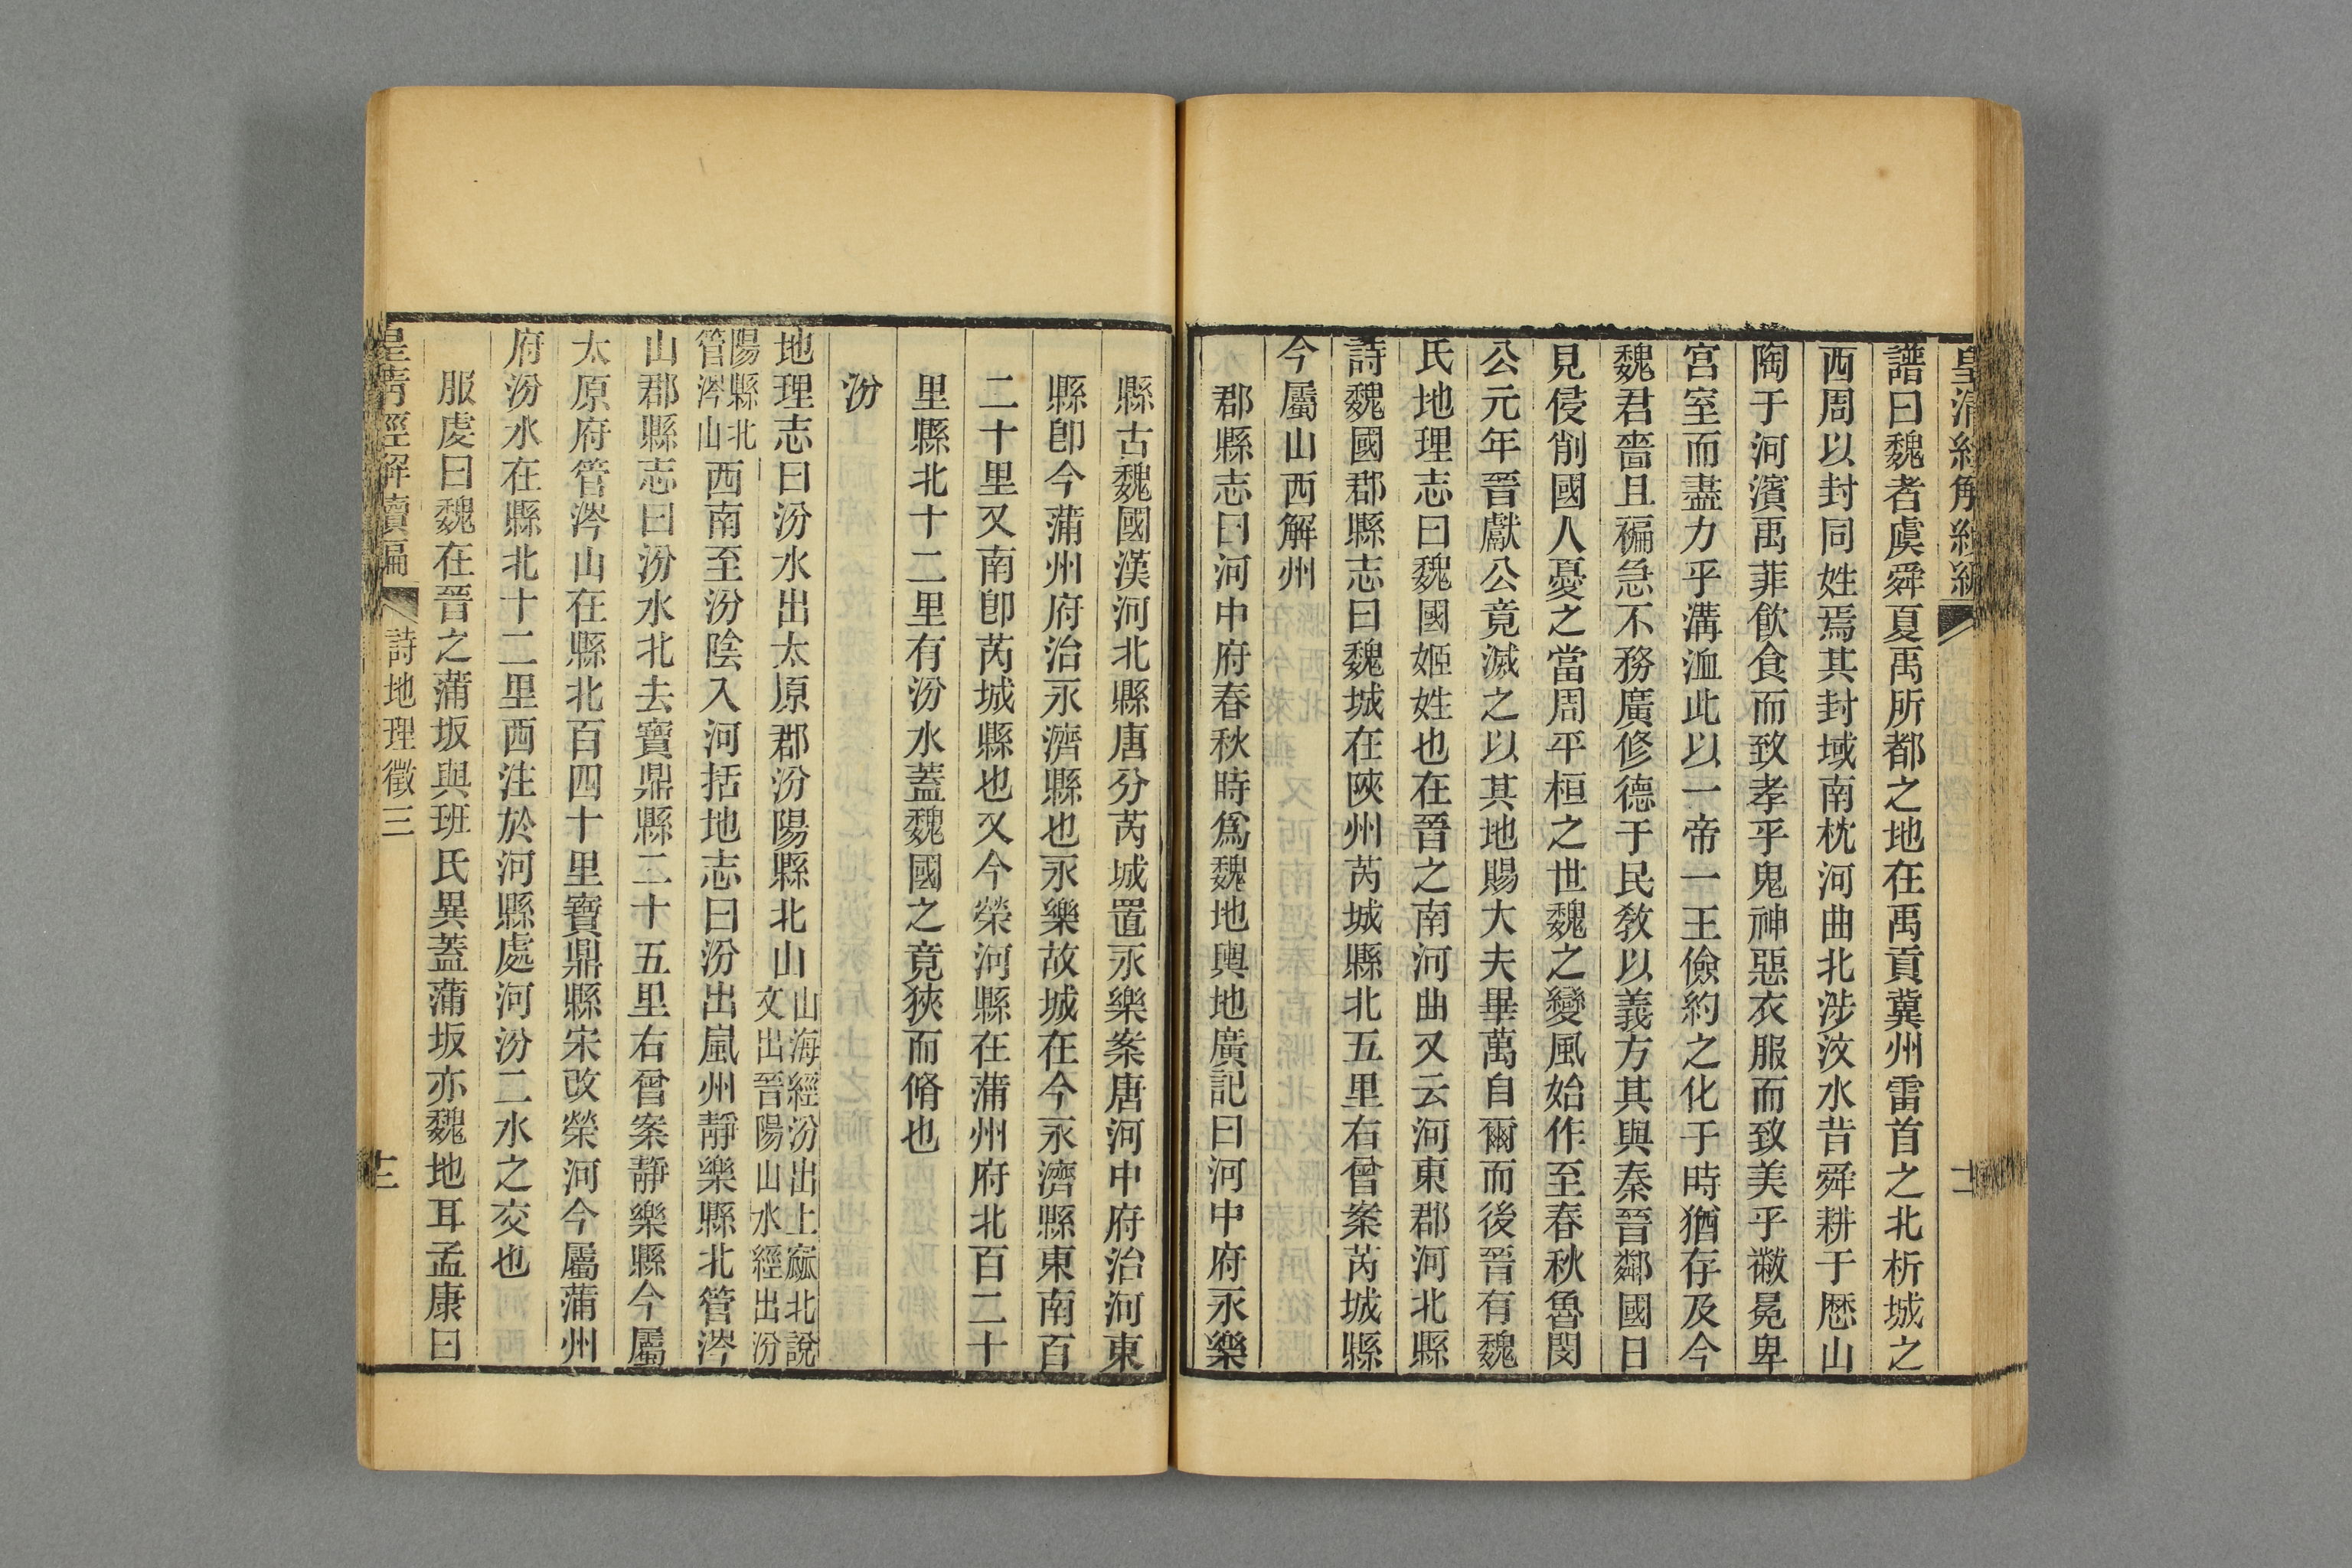 譜曰魏者虞舜夏禹所都之地在禹貢冀州雷首之北析城之
西周以封同姓焉其封域南枕河曲北涉汶水昔舜耕于歷山
陶于河濱禹菲飲食而致孝乎鬼神惡衣服而致美乎黻冕卑
宮室而盡力乎溝洫此以一帝一王儉約之化于時猶存及今
魏君嗇且褊急不務廣修德于民教以義方其與秦晉鄰國日
見侵削國人憂之當周平桓之世魏之變風始作至春秋魯閔
公元年晉獻公竟滅之以其地賜大夫畢萬自爾而後晉有魏
氏地理志曰魏國姬姓也在晉之南河曲又云河東郡河北縣
詩魏國郡縣志曰魏城在陝州芮城縣北五里右曾案芮城縣
今屬山西解州
郡縣志曰河中府春秋時爲魏地輿地廣記曰河中府永樂
縣古魏國漢河北縣唐分芮城置永樂案唐河中府治河東
縣卽今蒲州府治永濟縣也永樂故城在今永濟縣東南百
二十里又南卽芮城縣也又今榮河縣在蒲州府北百二十
里縣北十二里有汾水蓋魏國之竟狹而脩也
汾
地理志曰汾水出太原郡汾陽縣北山山海經汾出上窳北說
文出晉陽山水經出汾
陽縣北
管涔山西南至汾陰入河括地志曰汾出嵐州靜樂縣北管涔
山郡縣志曰汾水北去寶鼎縣二十五里右曾案靜樂縣今屬
太原府管涔山在縣北百四十里寶鼎縣宋改榮河今屬蒲州
府汾水在縣北十二里西注於河縣處河汾二水之交也
服虔曰魏在晉之蒲坂與班氏異蓋蒲坂亦魏地耳孟康曰
皇清經解續編 詩地理徵三 十二